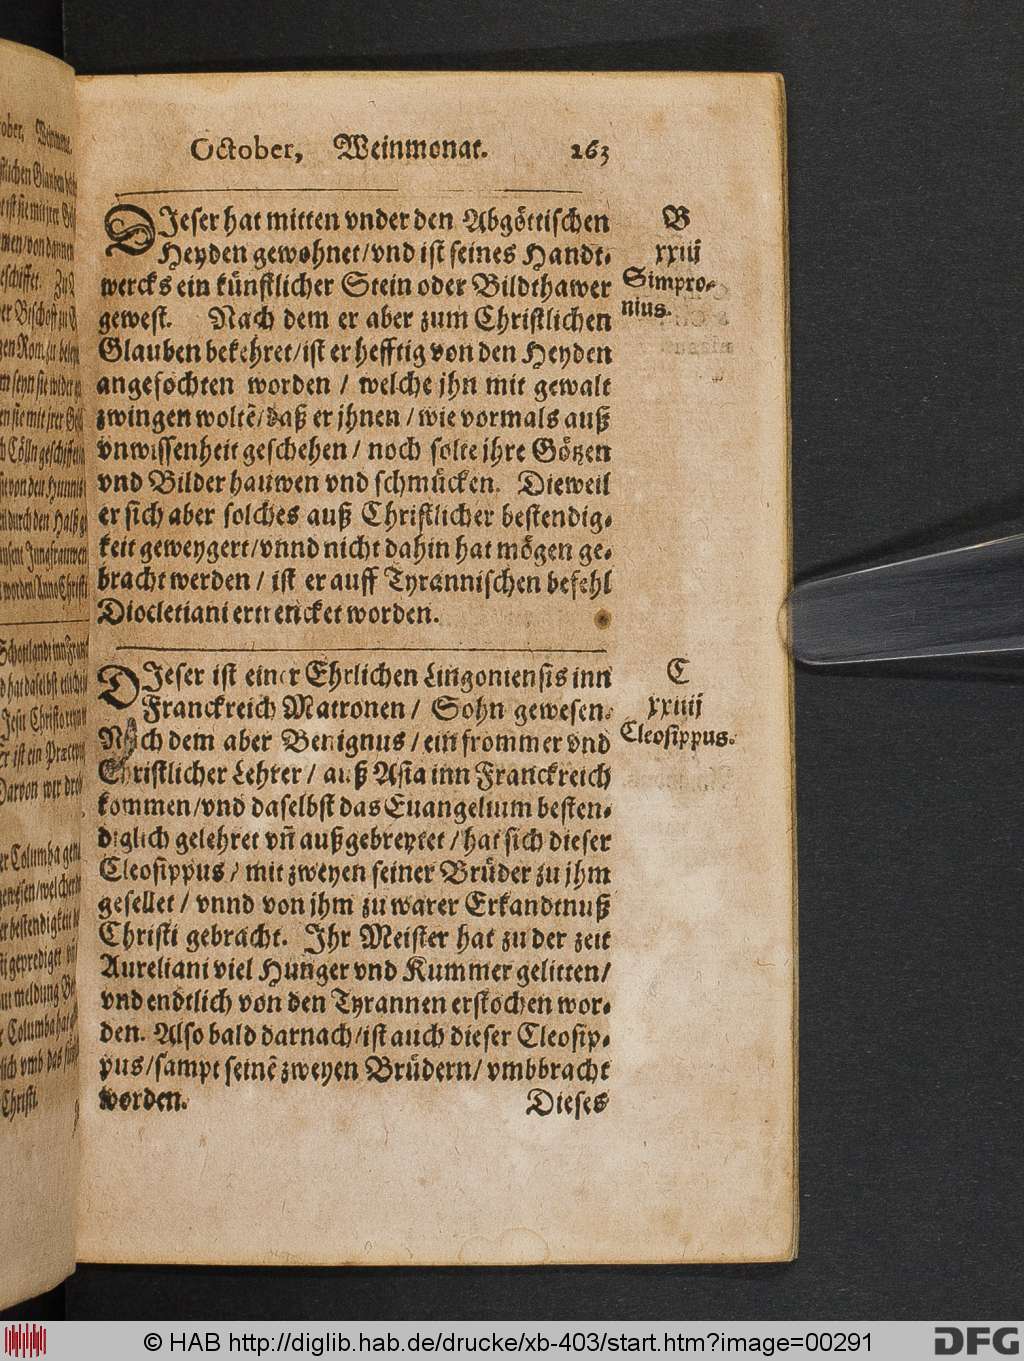 October, Weinmonat. 163
DIeser hat mitten vnder den Abgöttischen
Heyden gewohnet/vnd ist seines Handt-
wercks ein künstlicher Stein oder Bildthawer
gewest. Nach dem er aber zum Christlichen
Glauben bekehret/ist er hefftig von den Heyden
angefochten worden / welche jhn mit gewalt
zwingen woltẽ/daß er jhnen / wie vormals auß
vnwissenheit geschehen / noch solte jhre Götzen
vnd Bilder hauwen vnd schmücken. Dieweil
er sich aber solches auß Christlicher bestendig-
keit geweygert/vnnd nicht dahin hat mögen ge-
bracht werden / ist er auff Tyrannischen befehl
Diocletiani ertrencket worden.
B
xxiij
Simpro-
nius.
DIeser ist einer Ehrlichen Lingoniensis inn
Franckreich Matronen / Sohn gewesen.
Nach dem aber Benignus / ein frommer vnd
Christlicher Lehrer / auß Asia inn Franckreich
kommen/vnd daselbst das Euangelium besten-
diglich gelehret vñ außgebreytet / hat sich dieser
Cleosippus / mit zweyen seiner Brüder zu jhm
gesellet / vnnd von jhm zu warer Erkandtnuß
Christi gebracht. Ihr Meister hat zu der zeit
Aureliani viel Hunger vnd Kummer gelitten/
vnd endtlich von den Tyrannen erstochen wor-
den. Also bald darnach/ist auch dieser Cleosip-
pus/sampt seinẽ zweyen Brüdern/ vmbbracht
worden.
Dieses
C
xxiiij
Cleosippus.
© HAB http://diglib.hab.de/drucke/xb-403/start.htm?image=00291
DFG